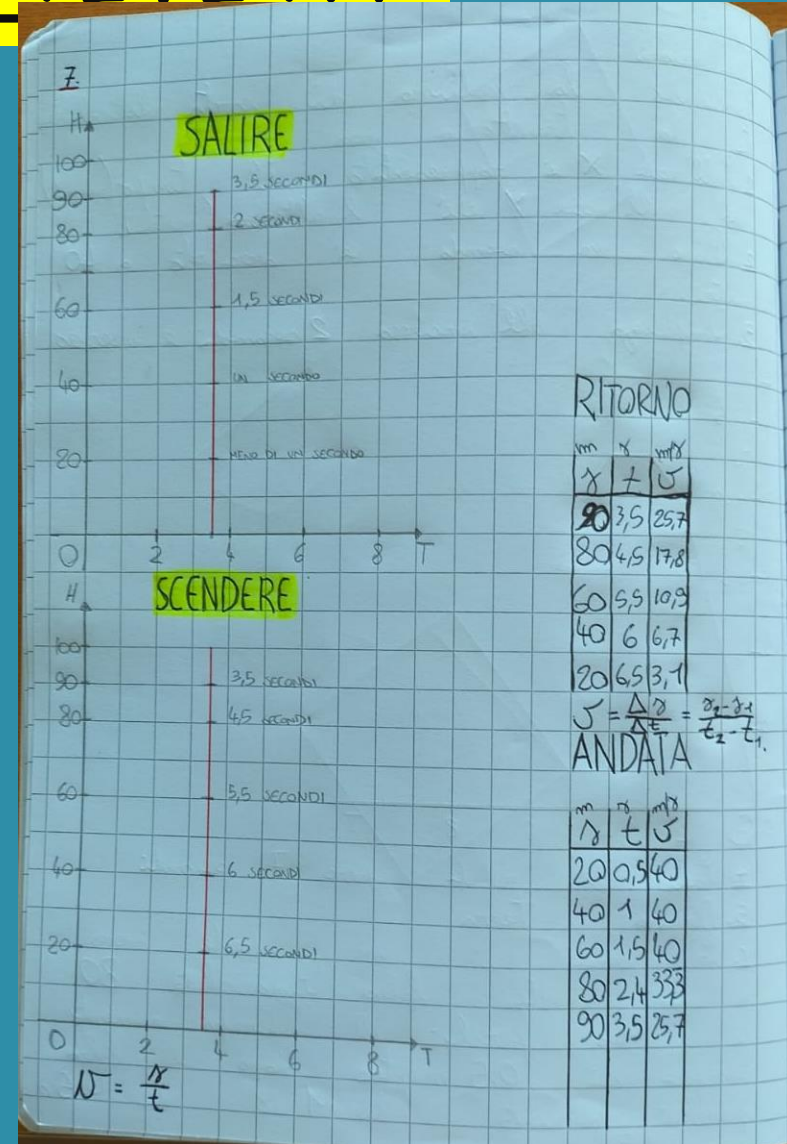 7.
H
SALIRE
100
90
80
60
40
20
3,5 SECONDI
2 SECONDI
1,5 SECONDI
UN SECONDO
MENO DI UN SECONDO
O 2 4 6 8 T
H
SCENDERE
100
90
80
60
40
20
3,5 SECONDI
4,5 SECONDI
5,5 SECONDI
6 SECONDI
6,5 SECONDI
O 2 4 6 8 T
v = s/t
RITORNO
m s m/s
s t v
90 3,5 25,7
80 4,5 17,8
60 5,5 10,9
40 6 6,7
20 6,5 3,1
v = Δs/Δt = s2-s1/t2-t1.
ANDATA
m s m/s
s t v
20 0,5 40
40 1 40
60 1,5 40
80 2,4 33,3
90 3,5 25,7